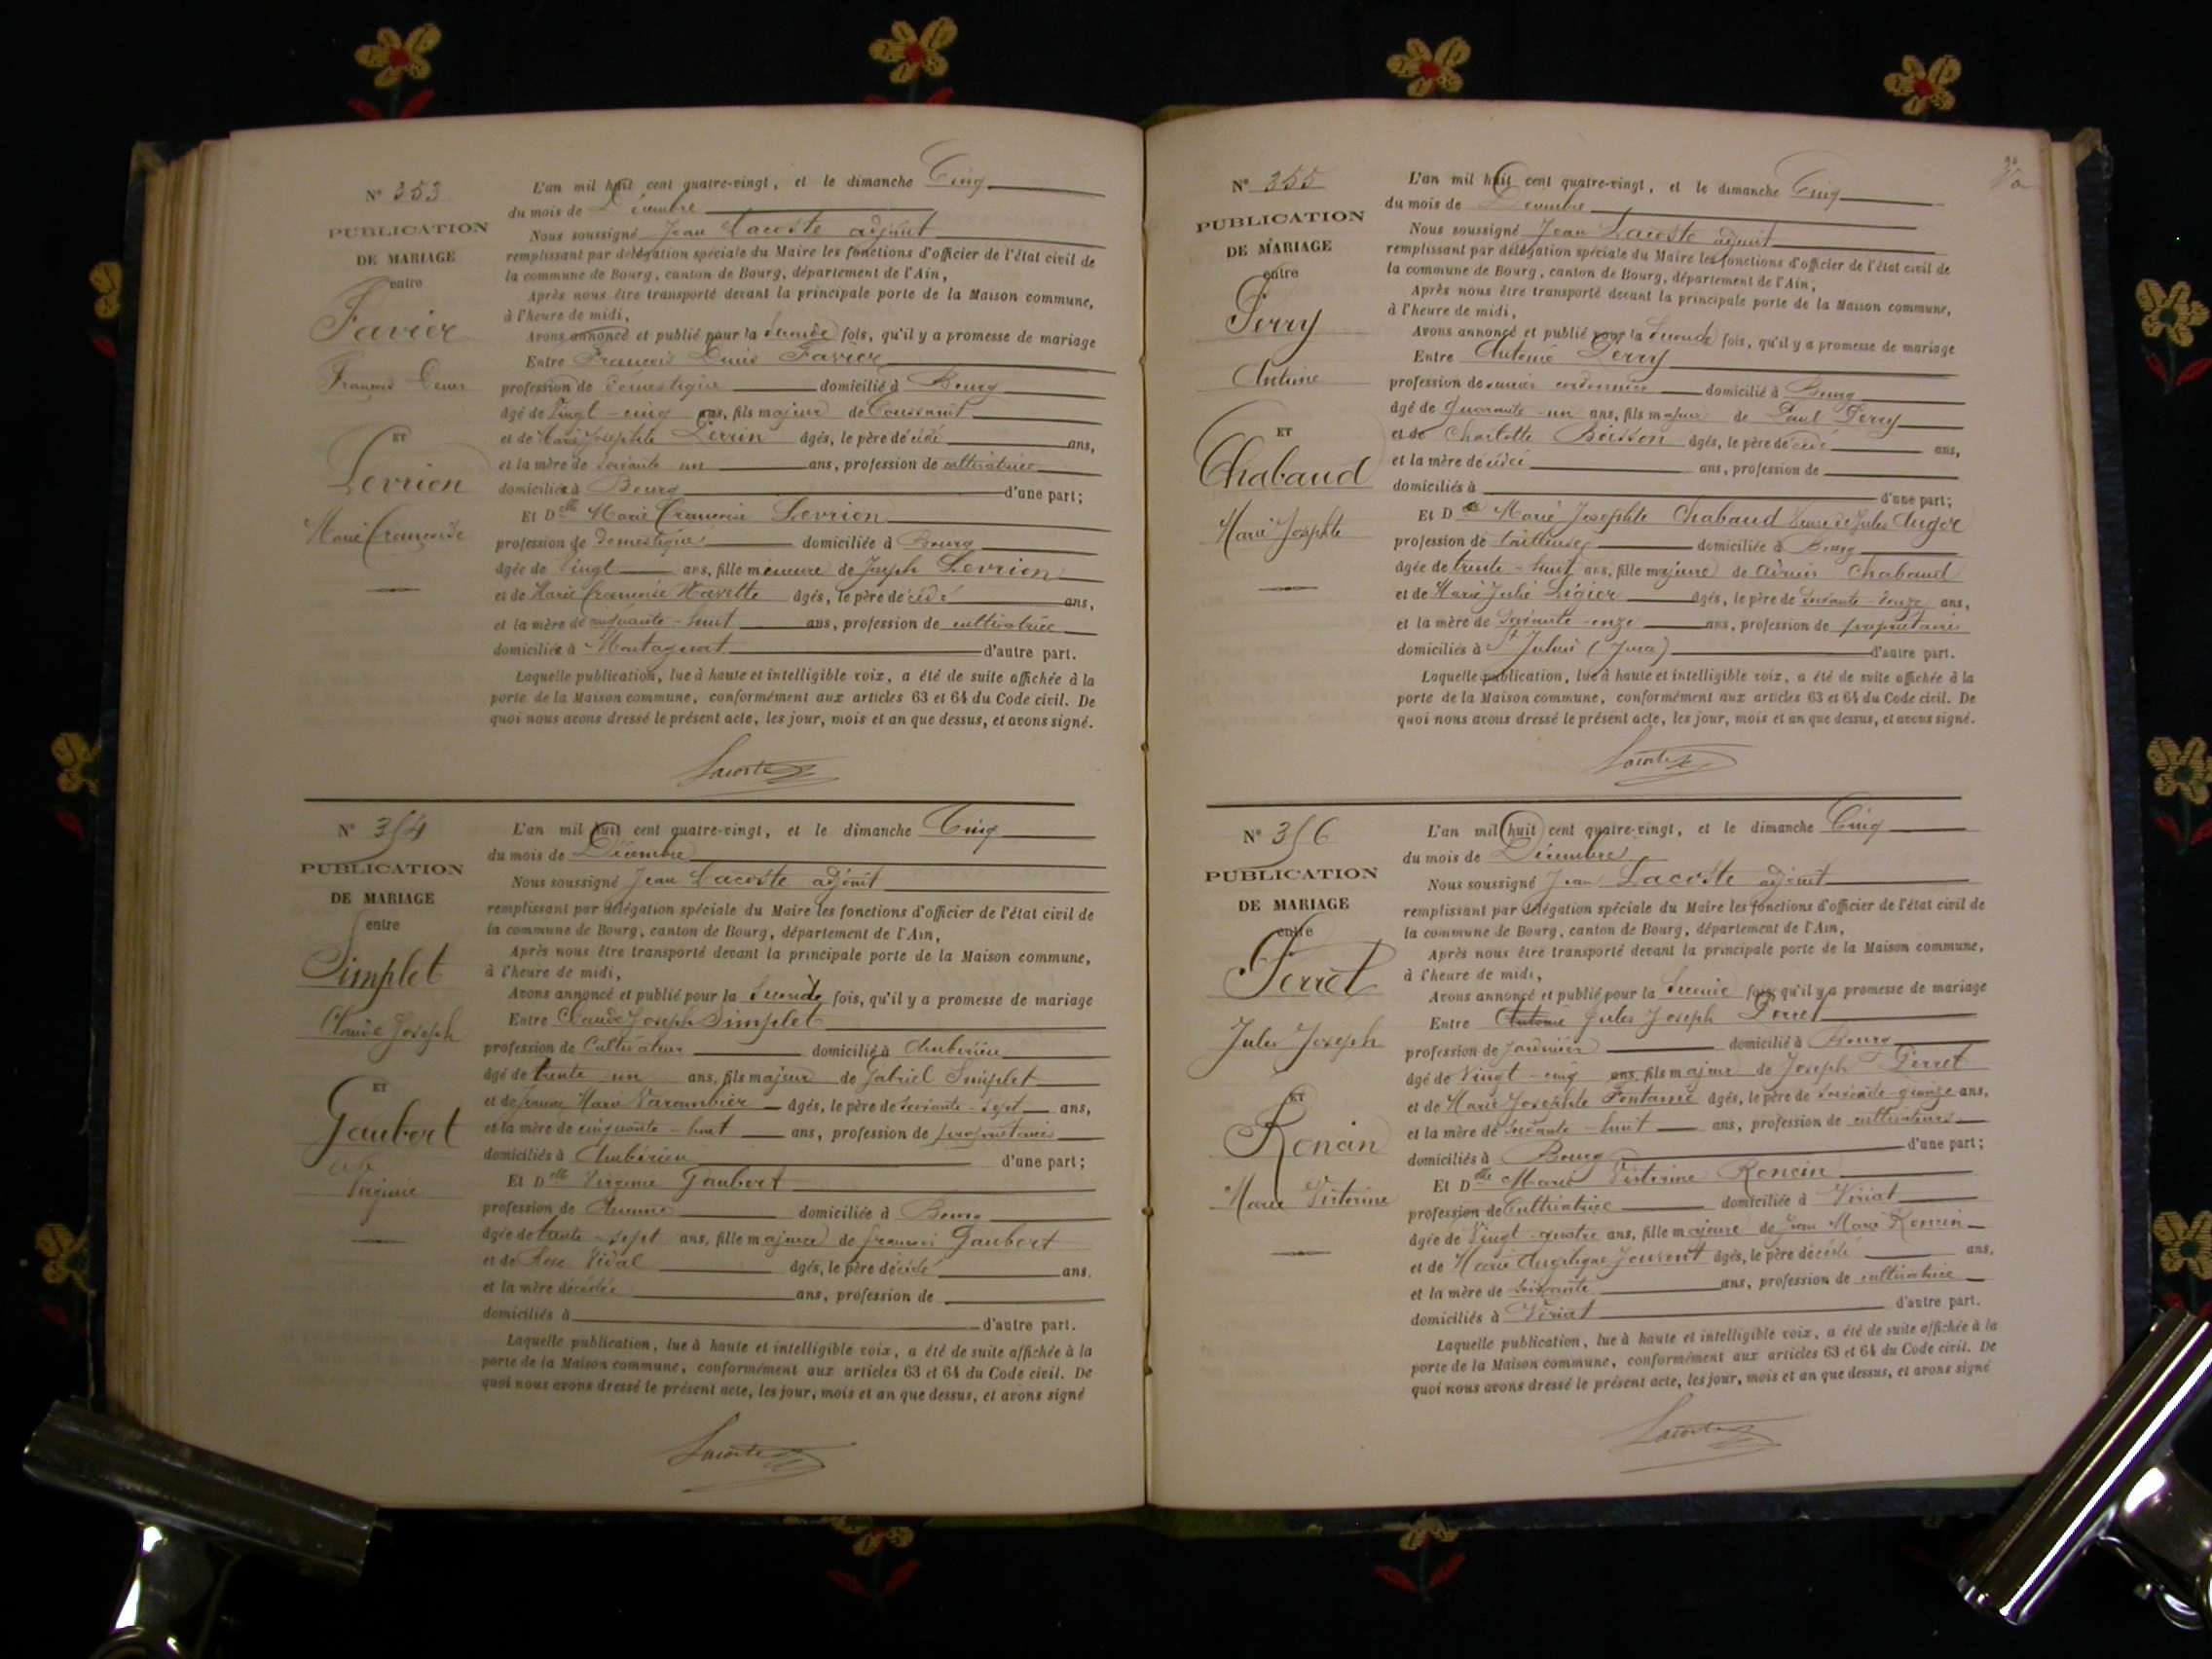 N° 353
PUBLICATION
DE MARIAGE
entre
Favier
François Denis
ET
Levrion
Marie Françoise
L'an mil huit cent quatre-vingt, et le dimanche Cinq
du mois de Décembre
Nous soussigné Jean Lacoste adjoint
remplissant par délégation spéciale du Maire les fonctions d'officier de l'état civil de
la commune de Bourg, canton de Bourg, département de l'Ain,
Après nous être transporté devant la principale porte de la Maison commune,
à l'heure de midi,
Avons annoncé et publié pour la seconde fois, qu'il y a promesse de mariage
Entre François Denis Favier
profession de domestique domicilié à Bourg
âgé de Vingt-cinq ans, fils majeur de
et de Marie Josephte Perrin âgés, le père décédé ans,
et la mère de soixante un ans, profession de cultivatrice
domiciliée à Bourg d'une part;
Et Delle Marie Françoise Levrion
profession de domestique domiciliée à Bourg
âgée de Vingt ans, fille mineure de Joseph Levrion
et de Marie Françoise âgés, le père décédé ans,
et la mère de cinquante-huit ans, profession de cultivatrice
domiciliée à Montagnat d'autre part.
Laquelle publication, lue à haute et intelligible voix, a été de suite affichée à la
porte de la Maison commune, conformément aux articles 63 et 64 du Code civil. De
quoi nous avons dressé le présent acte, les jour, mois et an que dessus, et avons signé.
Lacoste
N° 354
PUBLICATION
DE MARIAGE
entre
Simplet
Claude Joseph
ET
Gaubert
Virginie
L'an mil huit cent quatre-vingt, et le dimanche Cinq
du mois de Décembre
Nous soussigné Jean Lacoste adjoint
remplissant par délégation spéciale du Maire les fonctions d'officier de l'état civil de
la commune de Bourg, canton de Bourg, département de l'Ain,
Après nous être transporté devant la principale porte de la Maison commune,
à l'heure de midi,
Avons annoncé et publié pour la seconde fois, qu'il y a promesse de mariage
Entre Claude Joseph Simplet
profession de Cultivateur domicilié à Ambérieu
âgé de trente un ans, fils majeur de Gabriel Simplet
et de Jeanne Marie Varombier âgés, le père de soixante-sept ans,
et la mère de cinquante-huit ans, profession de propriétaires
domiciliés à Ambérieu d'une part;
Et Delle Virginie Gaubert
profession de domiciliée à Bourg
âgée de trente-sept ans, fille majeure de François Gaubert
et de Rose Vidal âgés, le père décédé ans.
et la mère décédée ans, profession de
domiciliés à d'autre part.
Laquelle publication, lue à haute et intelligible voix, a été de suite affichée à la
porte de la Maison commune, conformément aux articles 63 et 64 du Code civil. De
quoi nous avons dressé le présent acte, les jour, mois et an que dessus, et avons signé
Lacoste
N° 355
PUBLICATION
DE MARIAGE
entre
Perry
Antoine
ET
Chabaud
Marie Josephte
L'an mil huit cent quatre-vingt, et le dimanche Cinq
du mois de Décembre
Nous soussigné Jean Lacoste adjoint
remplissant par délégation spéciale du Maire les fonctions d'officier de l'état civil de
la commune de Bourg, canton de Bourg, département de l'Ain,
Après nous être transporté devant la principale porte de la Maison commune,
à l'heure de midi,
Avons annoncé et publié pour la seconde fois, qu'il y a promesse de mariage
Entre Antoine Perry
profession de ouvrier cordonnier domicilié à Bourg
âgé de quarante-un ans, fils majeur de Paul Perry
et de Charlotte Buisson âgés, le père décédé ans,
et la mère décédée ans, profession de
domiciliés à d'une part;
Et De Marie Josephte Chabaud Veuve de Jules Auger
profession de tailleuse domiciliée à Bourg
âgée de trente-huit ans, fille majeure de Chabaud
et de Marie Julie Ligier âgés, le père de soixante-douze ans,
et la mère de soixante-onze ans, profession de propriétaires
domiciliés à St Julien (Jura) d'autre part.
Laquelle publication, lue à haute et intelligible voix, a été de suite affichée à la
porte de la Maison commune, conformément aux articles 63 et 64 du Code civil. De
quoi nous avons dressé le présent acte, les jour, mois et an que dessus, et avons signé.
Lacoste
N° 356
PUBLICATION
DE MARIAGE
entre
Perret
Jules Joseph
ET
Roncin
Marie Victorine
L'an mil huit cent quatre-vingt, et le dimanche Cinq
du mois de Décembre
Nous soussigné Jean Lacoste adjoint
remplissant par délégation spéciale du Maire les fonctions d'officier de l'état civil de
la commune de Bourg, canton de Bourg, département de l'Ain,
Après nous être transporté devant la principale porte de la Maison commune,
à l'heure de midi,
Avons annoncé et publié pour la seconde fois, qu'il y a promesse de mariage
Entre Antoine Jules Joseph Perret
profession de Jardinier domicilié à Bourg
âgé de Vingt-cinq ans, fils majeur de Joseph Perret
et de Marie Josephte Fontaine âgés, le père de soixante-quinze ans,
et la mère de soixante-huit ans, profession de cultivateurs
domiciliés à Bourg d'une part;
Et Delle Marie Victorine Roncin
profession de Cultivatrice domiciliée à Viriat
âgée de Vingt-quatre ans, fille majeure de Jean Marie Roncin
et de Marie Angélique âgés, le père décédé ans,
et la mère de soixante ans, profession de cultivatrice
domiciliés à Viriat d'autre part.
Laquelle publication, lue à haute et intelligible voix, a été de suite affichée à la
porte de la Maison commune, conformément aux articles 63 et 64 du Code civil. De
quoi nous avons dressé le présent acte, les jour, mois et an que dessus, et avons signé
Lacoste